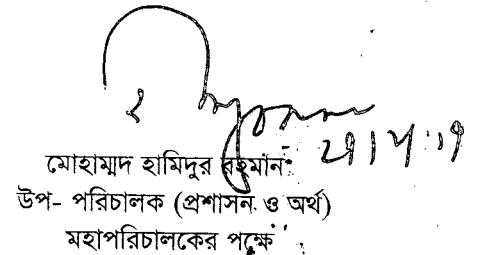 মোহাম্মদ হামিদুর রহমান
উপ- পরিচালক (প্রশাসন ও অর্থ)
মহাপরিচালকের পক্ষে